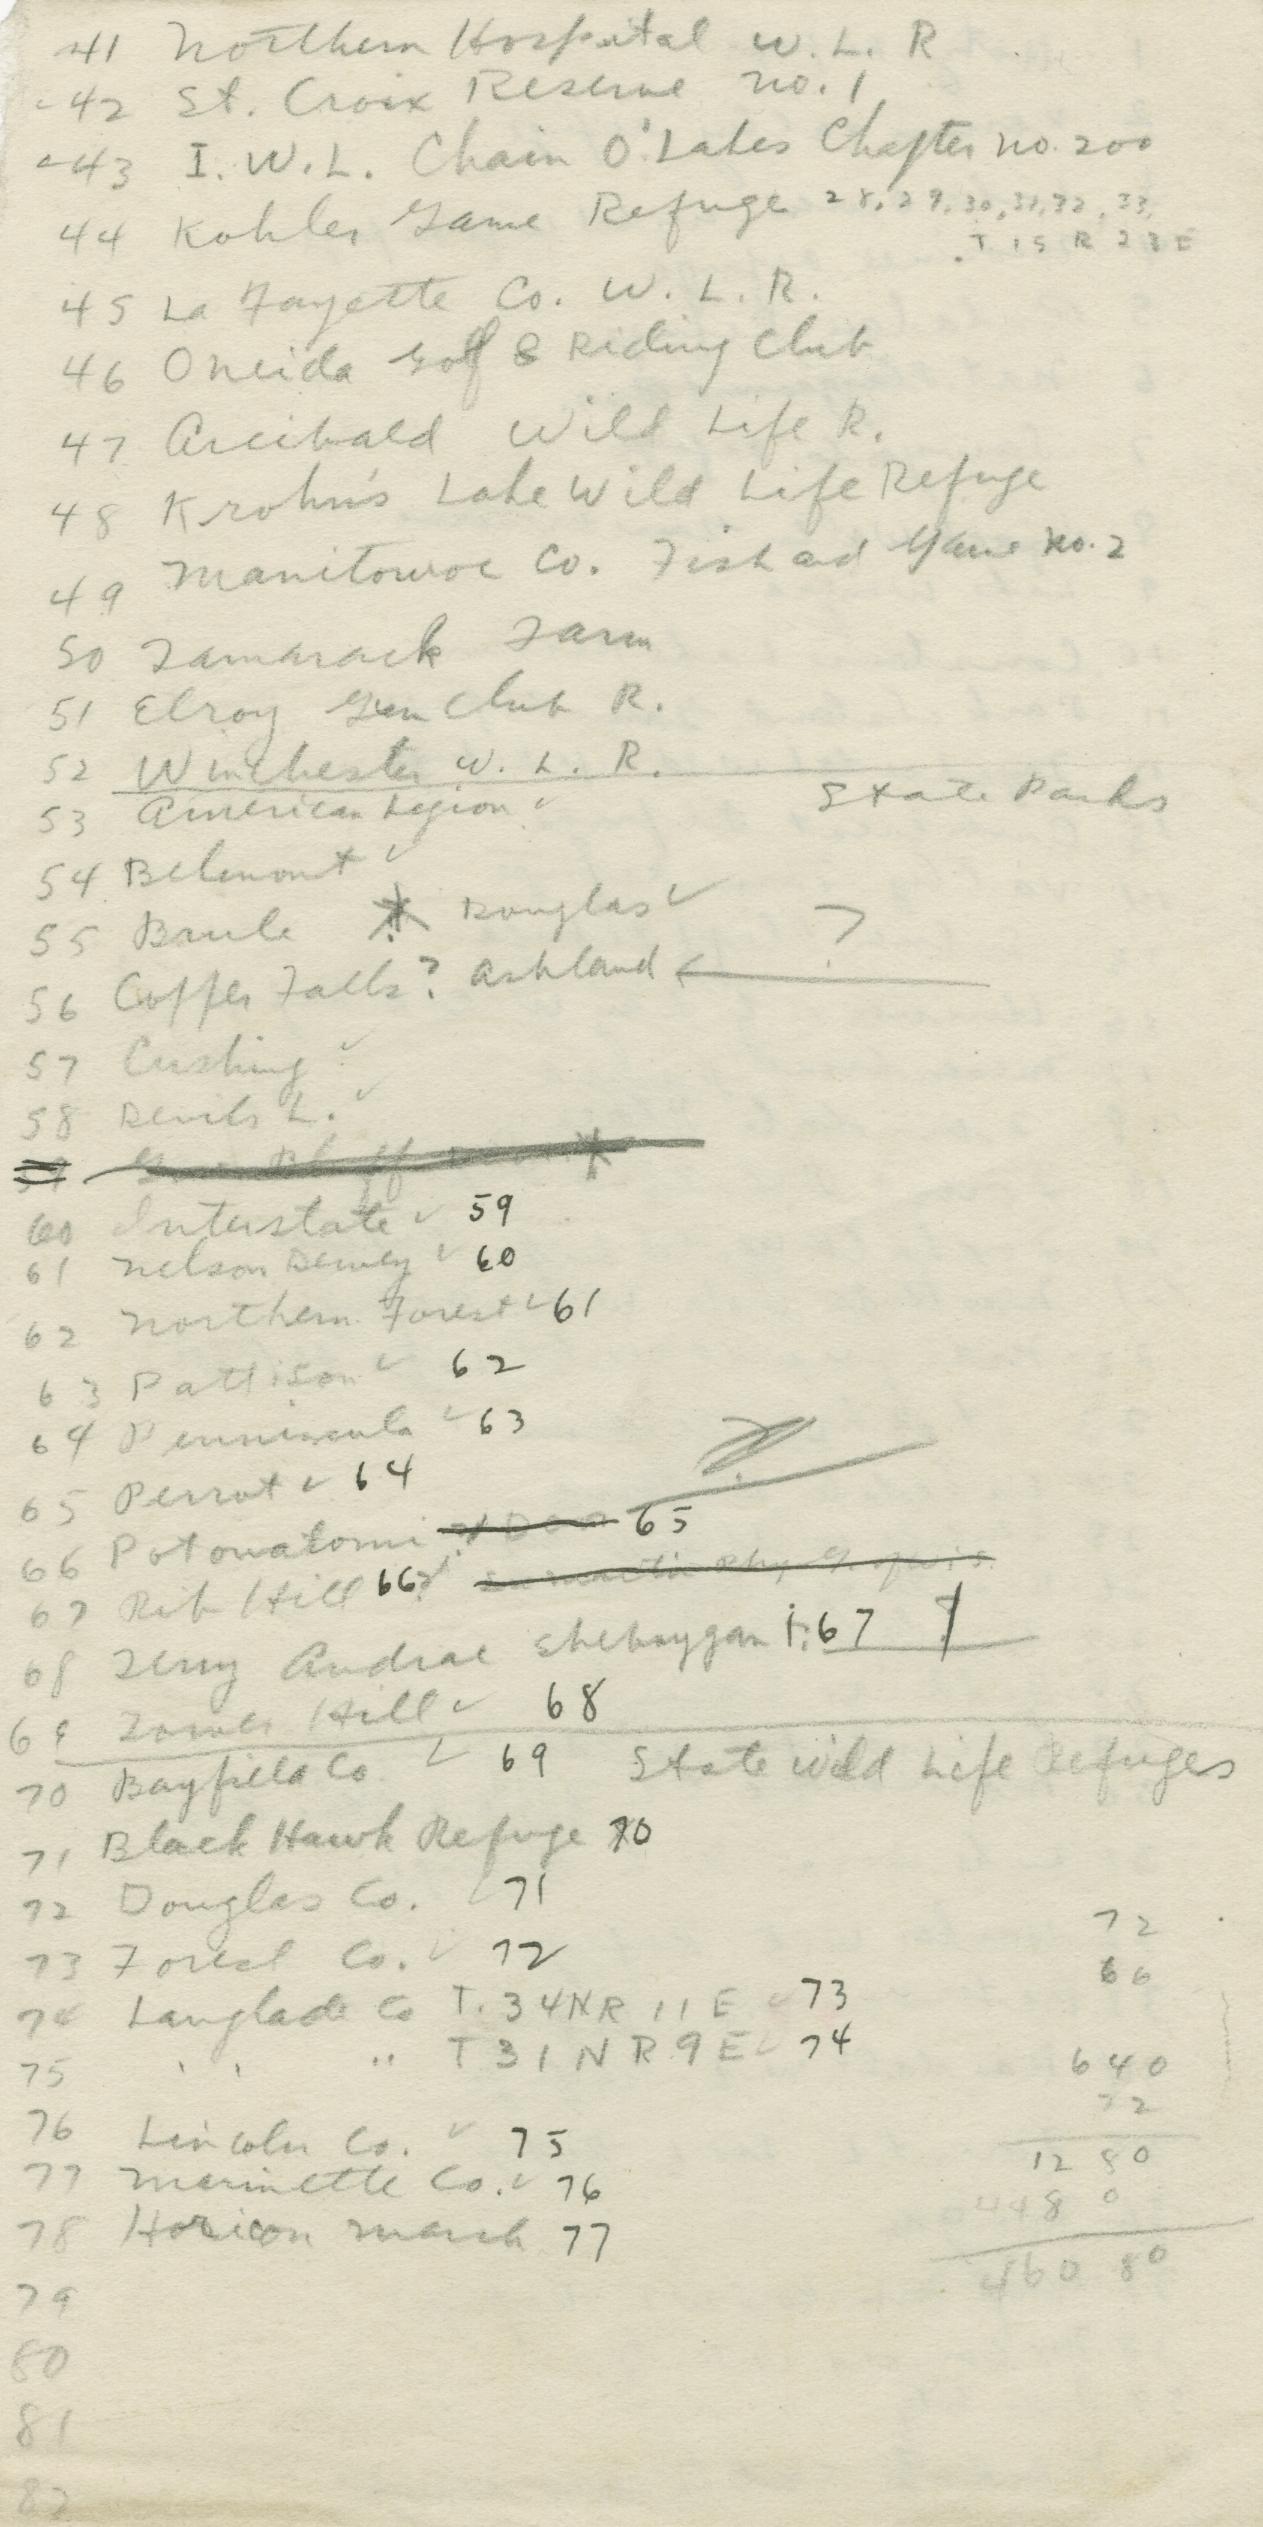 41 Northern Hospital W. L. R
-42 St. Croix Reserve No. 1
-43 I. W. L. Chain O'Lakes Chapter No. 200
44 Kohler Game Refuge 28, 29, 30, 31, 32, 33,
T 15 R 23 E
45 La Fayette Co. W. L. R.
46 Oneida Golf & Riding Club
47 Arcibald Wild Life R.
48 Krohn's Lake Wild Life Refuge
49 Manitowoc Co. Fish and Game No. 2
50 Tamarack Farm
51 Elroy Gun Club R.
52 Winchester W. L. R.
State Parks
53 American Legion ✓
54 Belmont ✓
55 Brule * Douglas ✓ ?
56 Copper Falls? Ashland ←
57 Cushing ✓
58 Devils L. ✓
60 Interstate ✓ 59
61 Nelson Dewey ✓ 60
62 Northern Forest ✓ 61
63 Pattison ✓ 62
64 Penninsula ✓ 63
65 Perrot ✓ 64
66 Potowatomi 65
67 Rib Hill 66
68 Terry Andrae Sheboygan 67
69 Tower Hill ✓ 68
70 Bayfield Co. ✓ 69 State Wild Life Refuges
71 Black Hawk Refuge 70
72 Douglas Co. ✓ 71
73 Forest Co. ✓ 72
74 Langlade Co T. 34 N R 11 E ✓ 73
75 " " " T 31 N R 9 E ✓ 74
76 Lincoln Co. ✓ 75
77 Marinette Co. ✓ 76
78 Horicon Marsh 77
79
80
81
82
72
66
640
72
1280
4480
46080